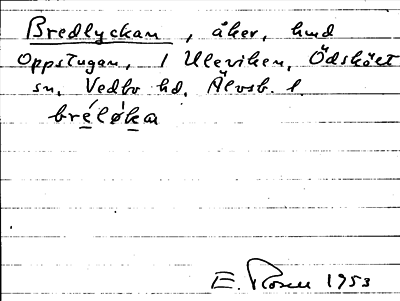 Bredlyckan, åker, hmd
Oppstugan, i Uleviken, Ödsköts
sn, Vedbo hd, Älvsb. l.
bréløka
E. Rosell 1953